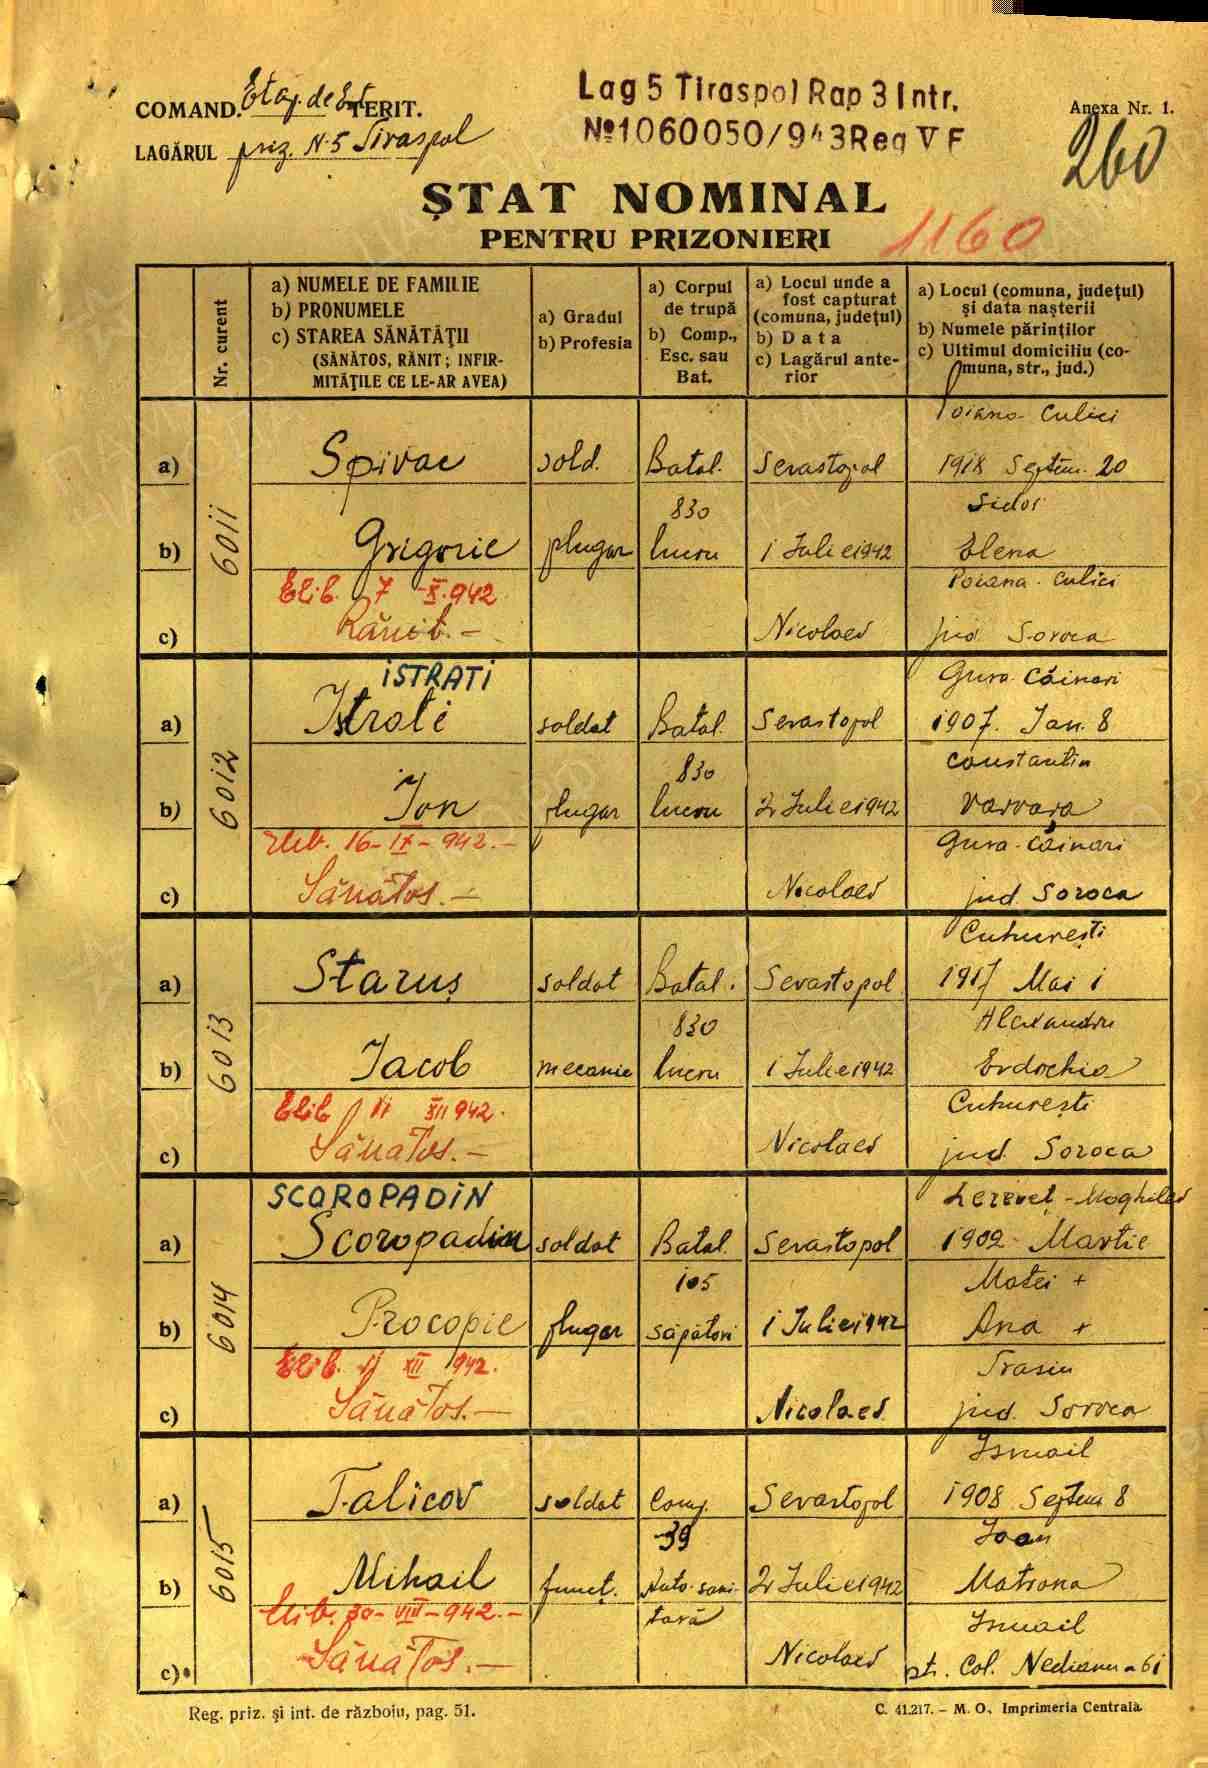 COMAND. Etap. de Est TERIT.
LAGĂRUL priz. N-5 Tiraspol
Lag 5 Tiraspol Rap 3 Intr.
№1060050/943 Reg V F
Anexa Nr. 1.
260
ȘTAT NOMINAL
PENTRU PRIZONIERI
1160
Nr. curent
a) NUMELE DE FAMILIE
b) PRONUMELE
c) STAREA SĂNĂTĂȚII
(SĂNĂTOS, RĂNIT; INFIR-
MITĂȚILE CE LE-AR AVEA)
a) Gradul
b) Profesia
a) Corpul
de trupă
b) Comp.,
Esc. sau
Bat.
a) Locul unde a
fost capturat
(comuna, județul)
b) Data
c) Lagărul ante-
rior
a) Locul (comuna, județul)
și data nașterii
b) Numele părinților
c) Ultimul domiciliu (co-
muna, str., jud.)
6011
Poiana Culici
a) Spivac sold. Batal. Sevastopol 1918 Septem. 20
830 Sidor
b) Grigorie plugar lucru 1 Iulie 1942 Elena
Elib. 7 X.942 Poiana-Culici
c) Rănit.- Nicolaev jud Soroca
6012
ISTRATI Gura Căinari
a) Istrati soldat Batal. Sevastopol 1907. Ian. 8
830 Constantin
b) Ion plugar lucru 2 Iulie 1942 Varvara
Elib. 16-IX-942.- Gura-Căinari
c) Sănătos.- Nicolaev jud Soroca
6013
Cuhurești
a) Staruș soldat Batal. Sevastopol 1917 Mai 1
830 Alexandru
b) Iacob mecanic lucru 1 Iulie 1942 Evdochia
Elib 11 XII 942. Cuhurești
c) Sănătos.- Nicolaev jud. Soroca
6014
SCOROPADIN -Moghilev
a) Scoropadin soldat Batal. Sevastopol 1902 Martie
105 Matei +
b) Procopie plugar săpători 1 Iulie 1942 Ana +
Elib. 11 XII 942. Trasin
c) Sănătos.- Nicolaev. jud. Soroca
6015
Ismail
a) Falicov soldat Comp. Sevastopol 1908 Septem 8
39 Ioan
b) Mihail funcț. Auto-sani- 2 Iulie 1942 Matrona
Elib. 30-VIII-942.- tară Ismail
c) Sănătos.- Nicolaev str. Col. Nedianu-61
Reg. priz. și int. de războiu, pag. 51.
C. 41.217. - M. O., Imprimeria Centrală.